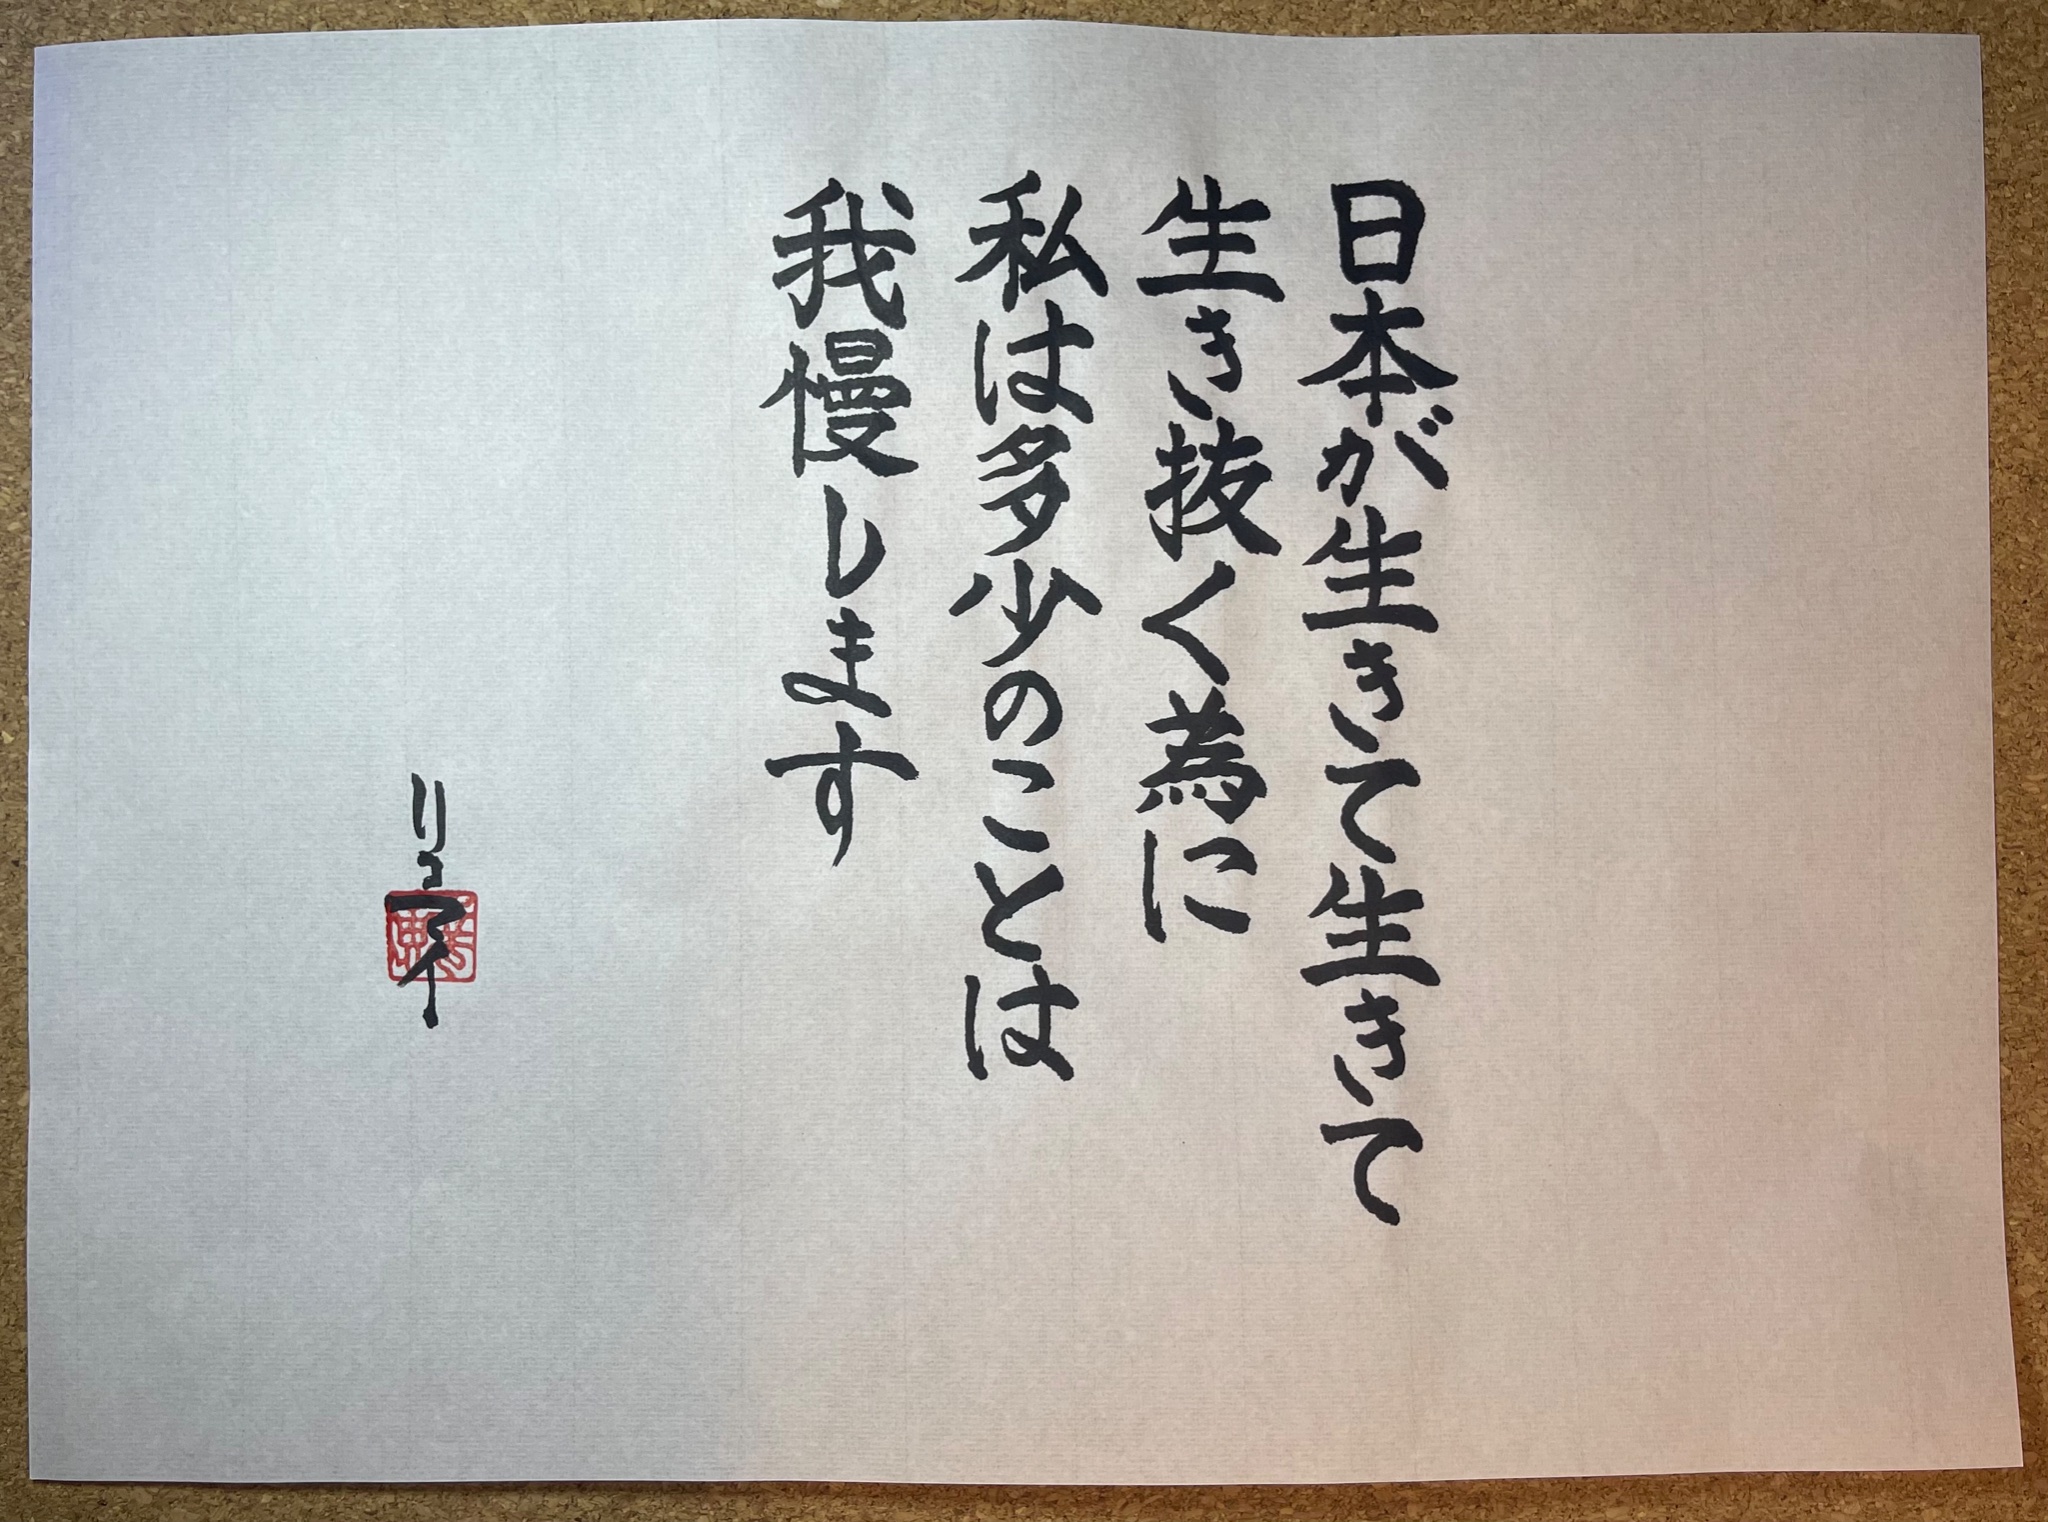 日本が生きて生きて
生き抜く為に
私は多少のことは
我慢します